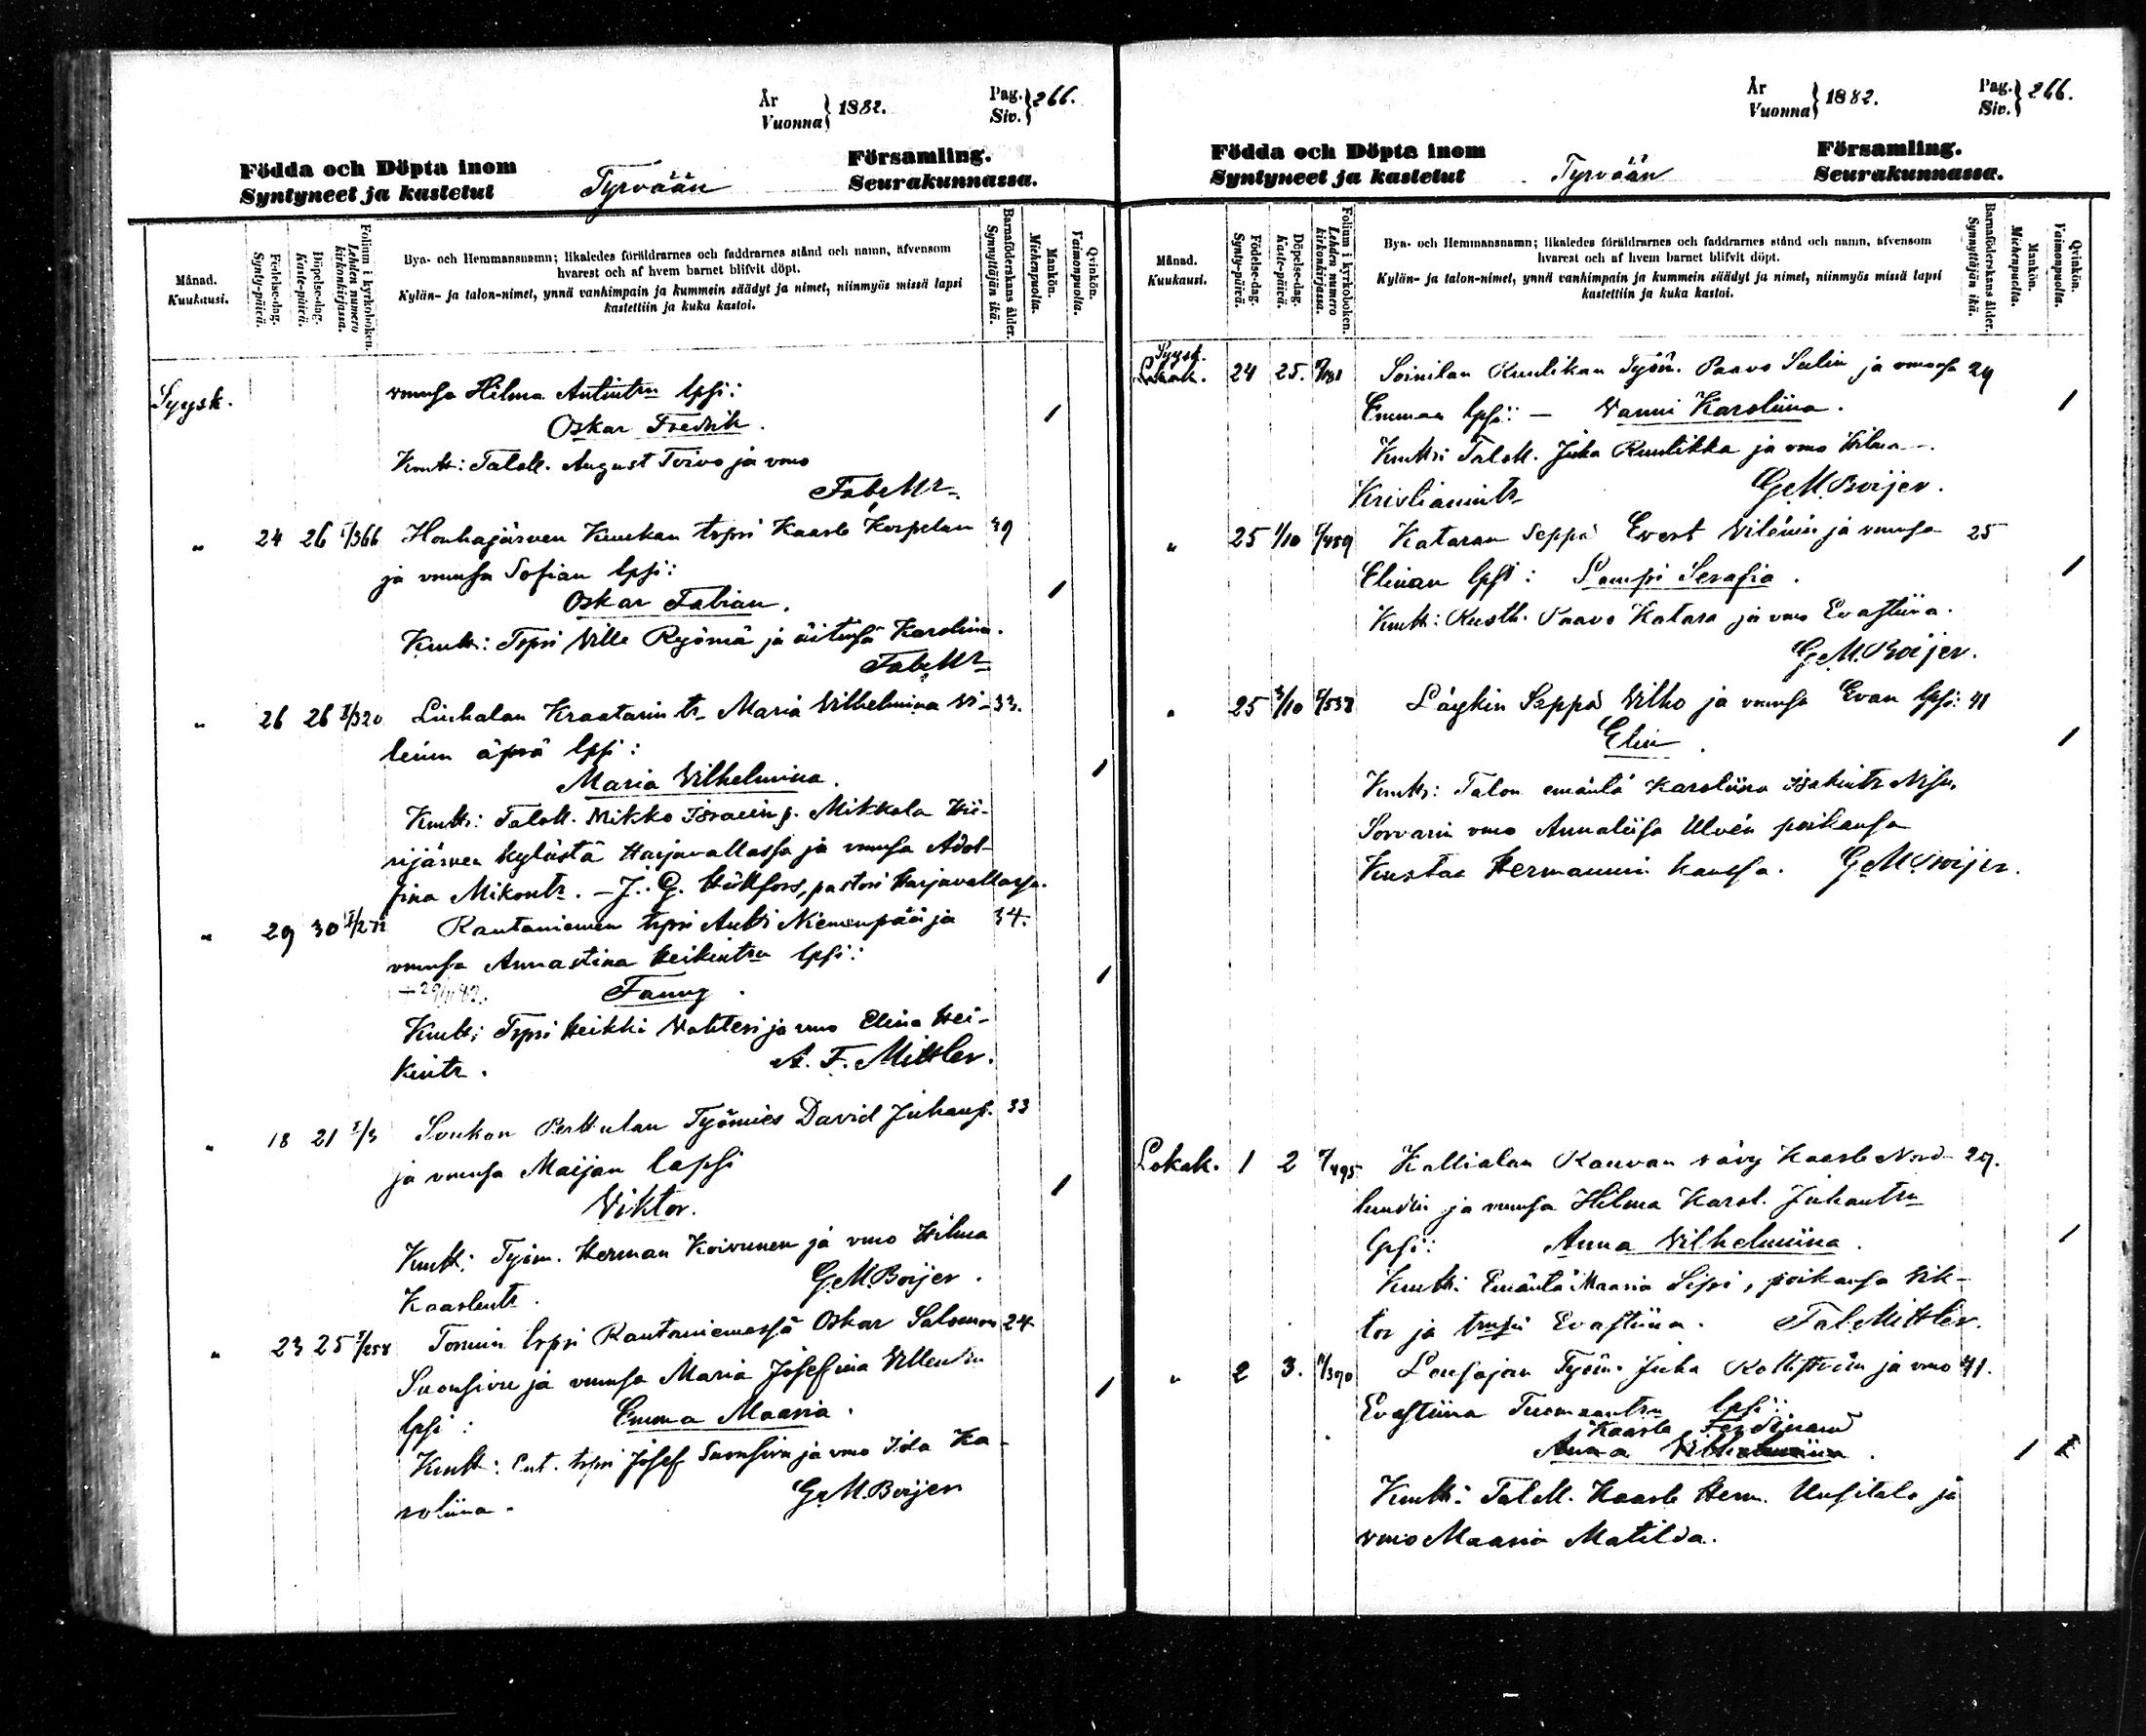 År
Vuonna } 1882.
Pag.
Siv. } 266.
Födda och Döpta inom
Syntyneet ja kastetut
Tyrvään
Församling.
Seurakunnassa.
Månad.
Kuukausi.
Födelse-dag.
Synty-päivä.
Döpelse-dag.
Kaste-päivä.
Folium i kyrkoboken.
Lehden numero kirkonkirjassa.
Bya- och Hemmansnamn; likaledes föräldrarnes och faddrarnes stånd och namn, äfvensom
hvarest och af hvem barnet blifvit döpt.
Kylän- ja talon-nimet, ynnä vanhimpain ja kummein säädyt ja nimet, niinmyös missä lapsi
kastettiin ja kuka kastoi.
Barnaföderskans ålder.
Synnyttäjän ikä.
Mankön.
Miehenpuolta.
Qvinkön.
Vaimonpuolta.
Syysk. vmnsa Hilma Antintrn lpsi:
Oskar Fredrik. 1
Kmtt: Taloll. August Toivo ja vmo
" 24 26 I/366 Houhajärven Kuukan trpri Kaarle Korpelan 39
ja vmnsa Sofian lpsi:
Oskar Fabian. 1
Kmtt: Trpri Ville Ryömä ja äitinsä Karolina.
" 26 26 I/320 Liuhalan Kraatarin tr. Maria Vilhelmina Vi- 33.
leinin äprä lpsi:
Maria Vilhelmina. 1
Kmtt: Taloll. Mikko Israelinp. Mikkola Hii-
rijärven kylästä Harjavallassa ja vmnsa Adol-
fina Mikontr. - J. G. Hällfors, pastori Harjavallassa.
" 29 30 Rautaniemen trpri Antti Niemenpää ja 34.
vmnsa Annastina Heikintrn lpsi: 1
Fanny.
Kmtt: Trpri Heikki Vahteri ja vmo Elina Hei-
kintr. A. F. Mittler.
" 18 21 I/3 Soukon Perttulan Työmies David Juhanp. 33
ja vmnsa Maijan lapsi
Viktor. 1
Kmtt: Työm. Herman Koivunen ja vmo Hilma
Kaarlentr. G. M. Boijer.
" 23 25 I/258 Tornin trpri Rautaniemessä Oskar Salomon 24
Suonsivu ja vmnsa Maria Josefina Villentrn
lpsi: Emma Maaria. 1
Kmtt: Ent. trpri Josef Suonsivu ja vmo Ida Ka-
roliina. G. M. Boijer
År
Vuonna } 1882.
Pag.
Siv. } 266.
Födda och Döpta inom
Syntyneet ja kastetut
Tyrvään
Församling.
Seurakunnassa.
Månad.
Kuukausi.
Födelse-dag.
Synty-päivä.
Döpelse-dag.
Kaste-päivä.
Folium i kyrkoboken.
Lehden numero kirkonkirjassa.
Bya- och Hemmansnamn; likaledes föräldrarnes och faddrarnes stånd och namn, äfvensom
hvarest och af hvem barnet blifvit döpt.
Kylän- ja talon-nimet, ynnä vanhimpain ja kummein säädyt ja nimet, niinmyös missä lapsi
kastettiin ja kuka kastoi.
Barnaföderskans ålder.
Synnyttäjän ikä.
Mankön.
Miehenpuolta.
Qvinkön.
Vaimonpuolta.
Syysk.
Lokak. 24 25. Soinilan Ruulikan Työm. Paavo Salin ja vmnsa 29
Emman lpsi: - Vanni Karoliina. 1
Kmtt: Taloll. Juha Ruulikka ja vmo Hilma
Kristianintr. G. M. Boijer.
" 25 1/10 Kataran Seppä Evert Vilénin ja vmnsa 25
Elinan lpsi: Lempi Serafia. 1
Kmtt: Rusth. Paavo Katara ja vmo Evastiina.
G. M. Boijer.
" 25 3/10 Läykin Seppä Vilho ja vmnsa Evan lpsi: 41
Elin. 1
Kmtt: Talon emäntä Karoliina Iisakintr
Sorvarin vmo Annaliisa Ulvén poikansa
Kustaa Hermannin kanssa. G. M. Boijer.
Lokak. 1 2 Kallialan Rauvan räty Kaarle Nord- 29.
lundin ja vmnsa Hilma Karol. Juhantrn
lpsi: Anna Vilhelmiina. 1
Kmtt: Emäntä Maaria Sipi, poikansa Vik-
tor ja Evastiina. Fab. Mittler.
" 2 3. Lousajan Työm. Juha ja vmo 41.
Evastiina Tuomaantrn lpsi:
Kaarle Ferdinand
Anna Vilhelmiina. 1
Kmtt: Taloll. Kaarle Herm. Uusitalo ja
vmo Maaria Matilda.